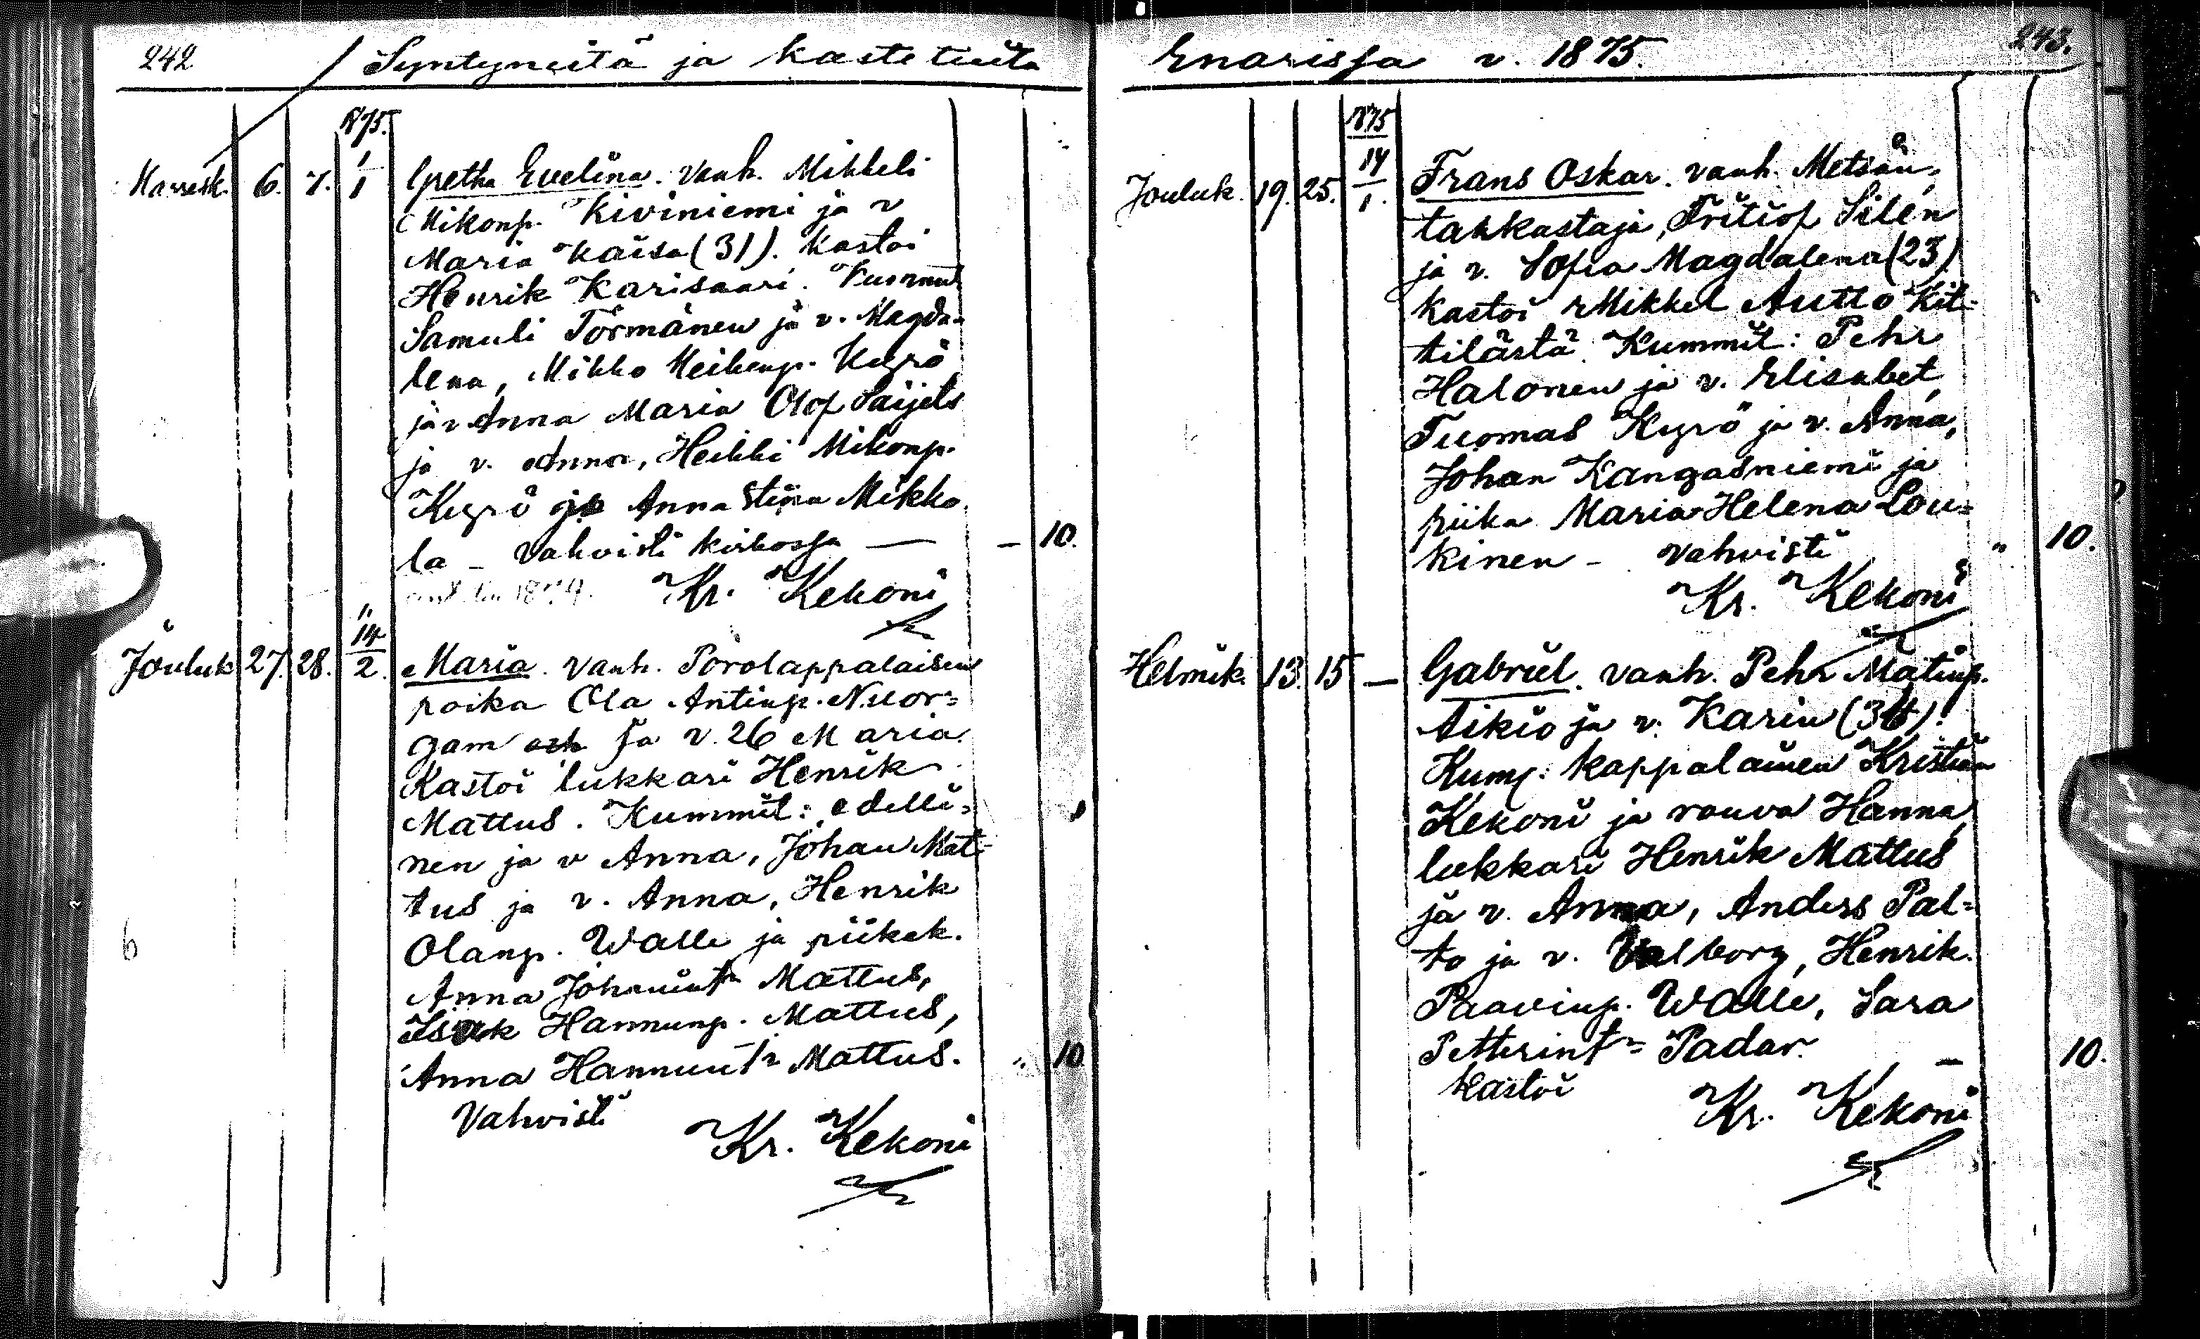 242
Syntyneitä ja kastetuita
1875.
Marrask. 6. 7. 1/1 Gretha Evelina. Vanh. Mikkeli
Mikonp. Kiviniemi ja v
Maria Kaisa (31). Kastoi
Henrik Karisaari. Kummit
Samuli Törmänen ja v. Magda-
lena, Mikko Heikinp. Kyrö
ja v Anna Maria Olof Saijets
ja v. Anna, Heikki Mikonp.
Kyrö ja Anna Stina Mikko
la – vahvisti kirkossa — – 10.
1874.
Kr. Kekoni
Jouluk 27. 28. 14/2. Maria. Vanh. Porolappalaisen
poika Ola Antinp. Nuor=
gam ja v. 26 Maria.
Kastoi lukkari Henrik
Mattus. Kummit: edelli=
nen ja v Anna, Johan Mat=
tus ja v. Anna, Henrik
Olanp. Walle ja piikak.
Anna Johanint? Mattus,
Isak Hannunp. Mattus,
Anna Hannunt? Mattus. " 10
Vahvisti
Kr. Kekoni
243.
Enarissa v. 1875.
1875
Jouluk. 19. 25. 14/1. Frans Oskar. Vanh. Metsän=
tarkastaja, Fritiof Silén
ja v. Sofia Magdalena (23)
kastoi Mikkel Autto Kit-
tilästä. Kummit: Pehr
Halonen ja v. Elisabet,
Tuomas Kyrö ja v. Anna,
Johan Kangasniemi ja
piika Maria Helena Lou=
kinen – Vahvisti " 10.
Kr. Kekoni
Helmik. 13. 15 – Gabriel. Vanh. Pehr Matinp.
Aikio ja v. Karin (36).
Kump: kappalainen Kristian
Kekoni ja rouva Hanna,
lukkari Henrik Mattus
ja v. Anna, Anders Pal=
to ja v. Valborg, Henrik
Paavinp. Walle, Sara
Petterint= Padar. – 10.
Kastoi
Kr. Kekoni